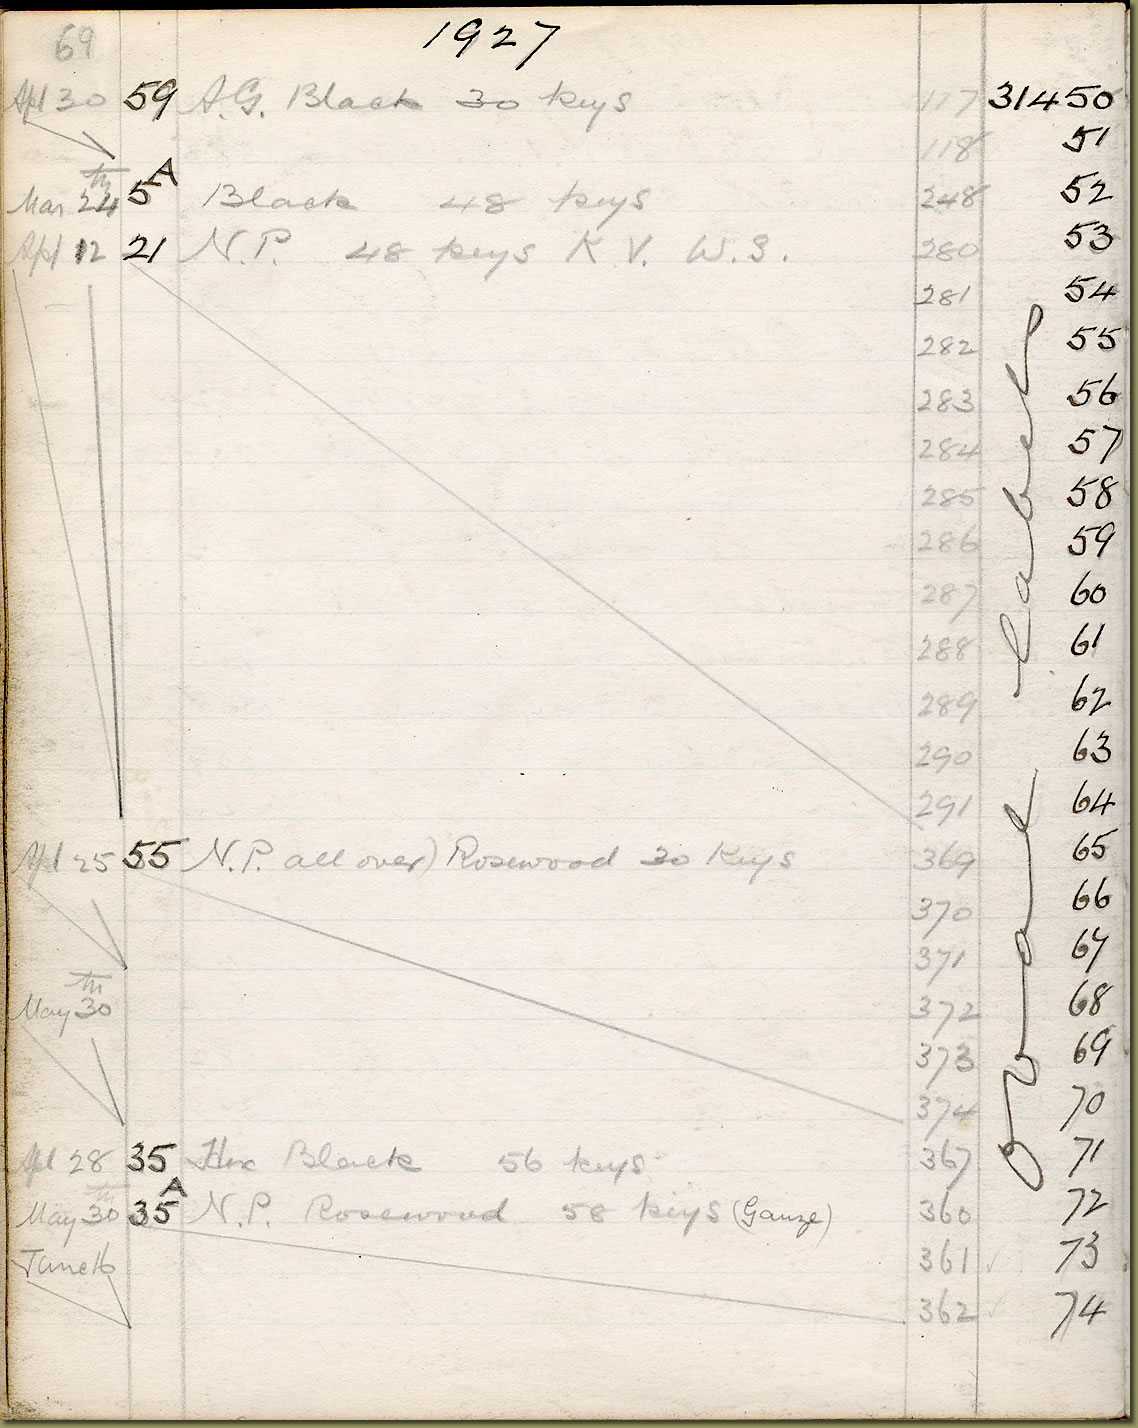 69
1927
Apl 30 59 A.G. Black 30 keys 117 31450
118 51
Mar 24th 5A Black 48 keys 248 52
Apl 12 21 N.P. 48 keys K.V. W.S. 280 53
281 54
282 55
283 56
284 57
285 58
286 59
287 60
288 61
289 62
290 63
291 64
Apl 25 55 N.P. all over) Rosewood 30 Keys 369 65
370 66
371 67
May 30th 372 68
373 69
374 70
Apl 28 35 Hex Black 56 keys 367 71
May 30th 35A N.P. Rosewood 58 keys (Gauze) 360 72
June 16 361 ✓ 73
362 ✓ 74
Oval Label